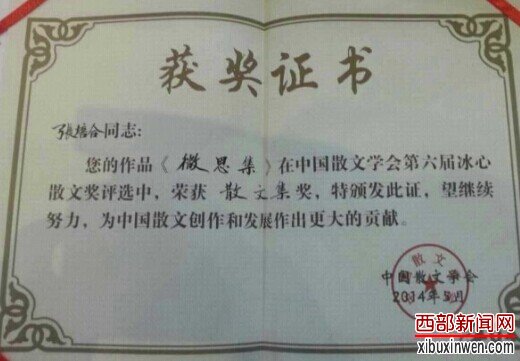 获奖证书
张培合同志：
您的作品《微思集》在中国散文学会第六届冰心
散文奖评选中，荣获 散文集奖，特颁发此证，望继续
努力，为中国散文创作和发展作出更大的贡献。
散文
中国散文学会
2014年5月
西部新闻网
xibuxinwen.com